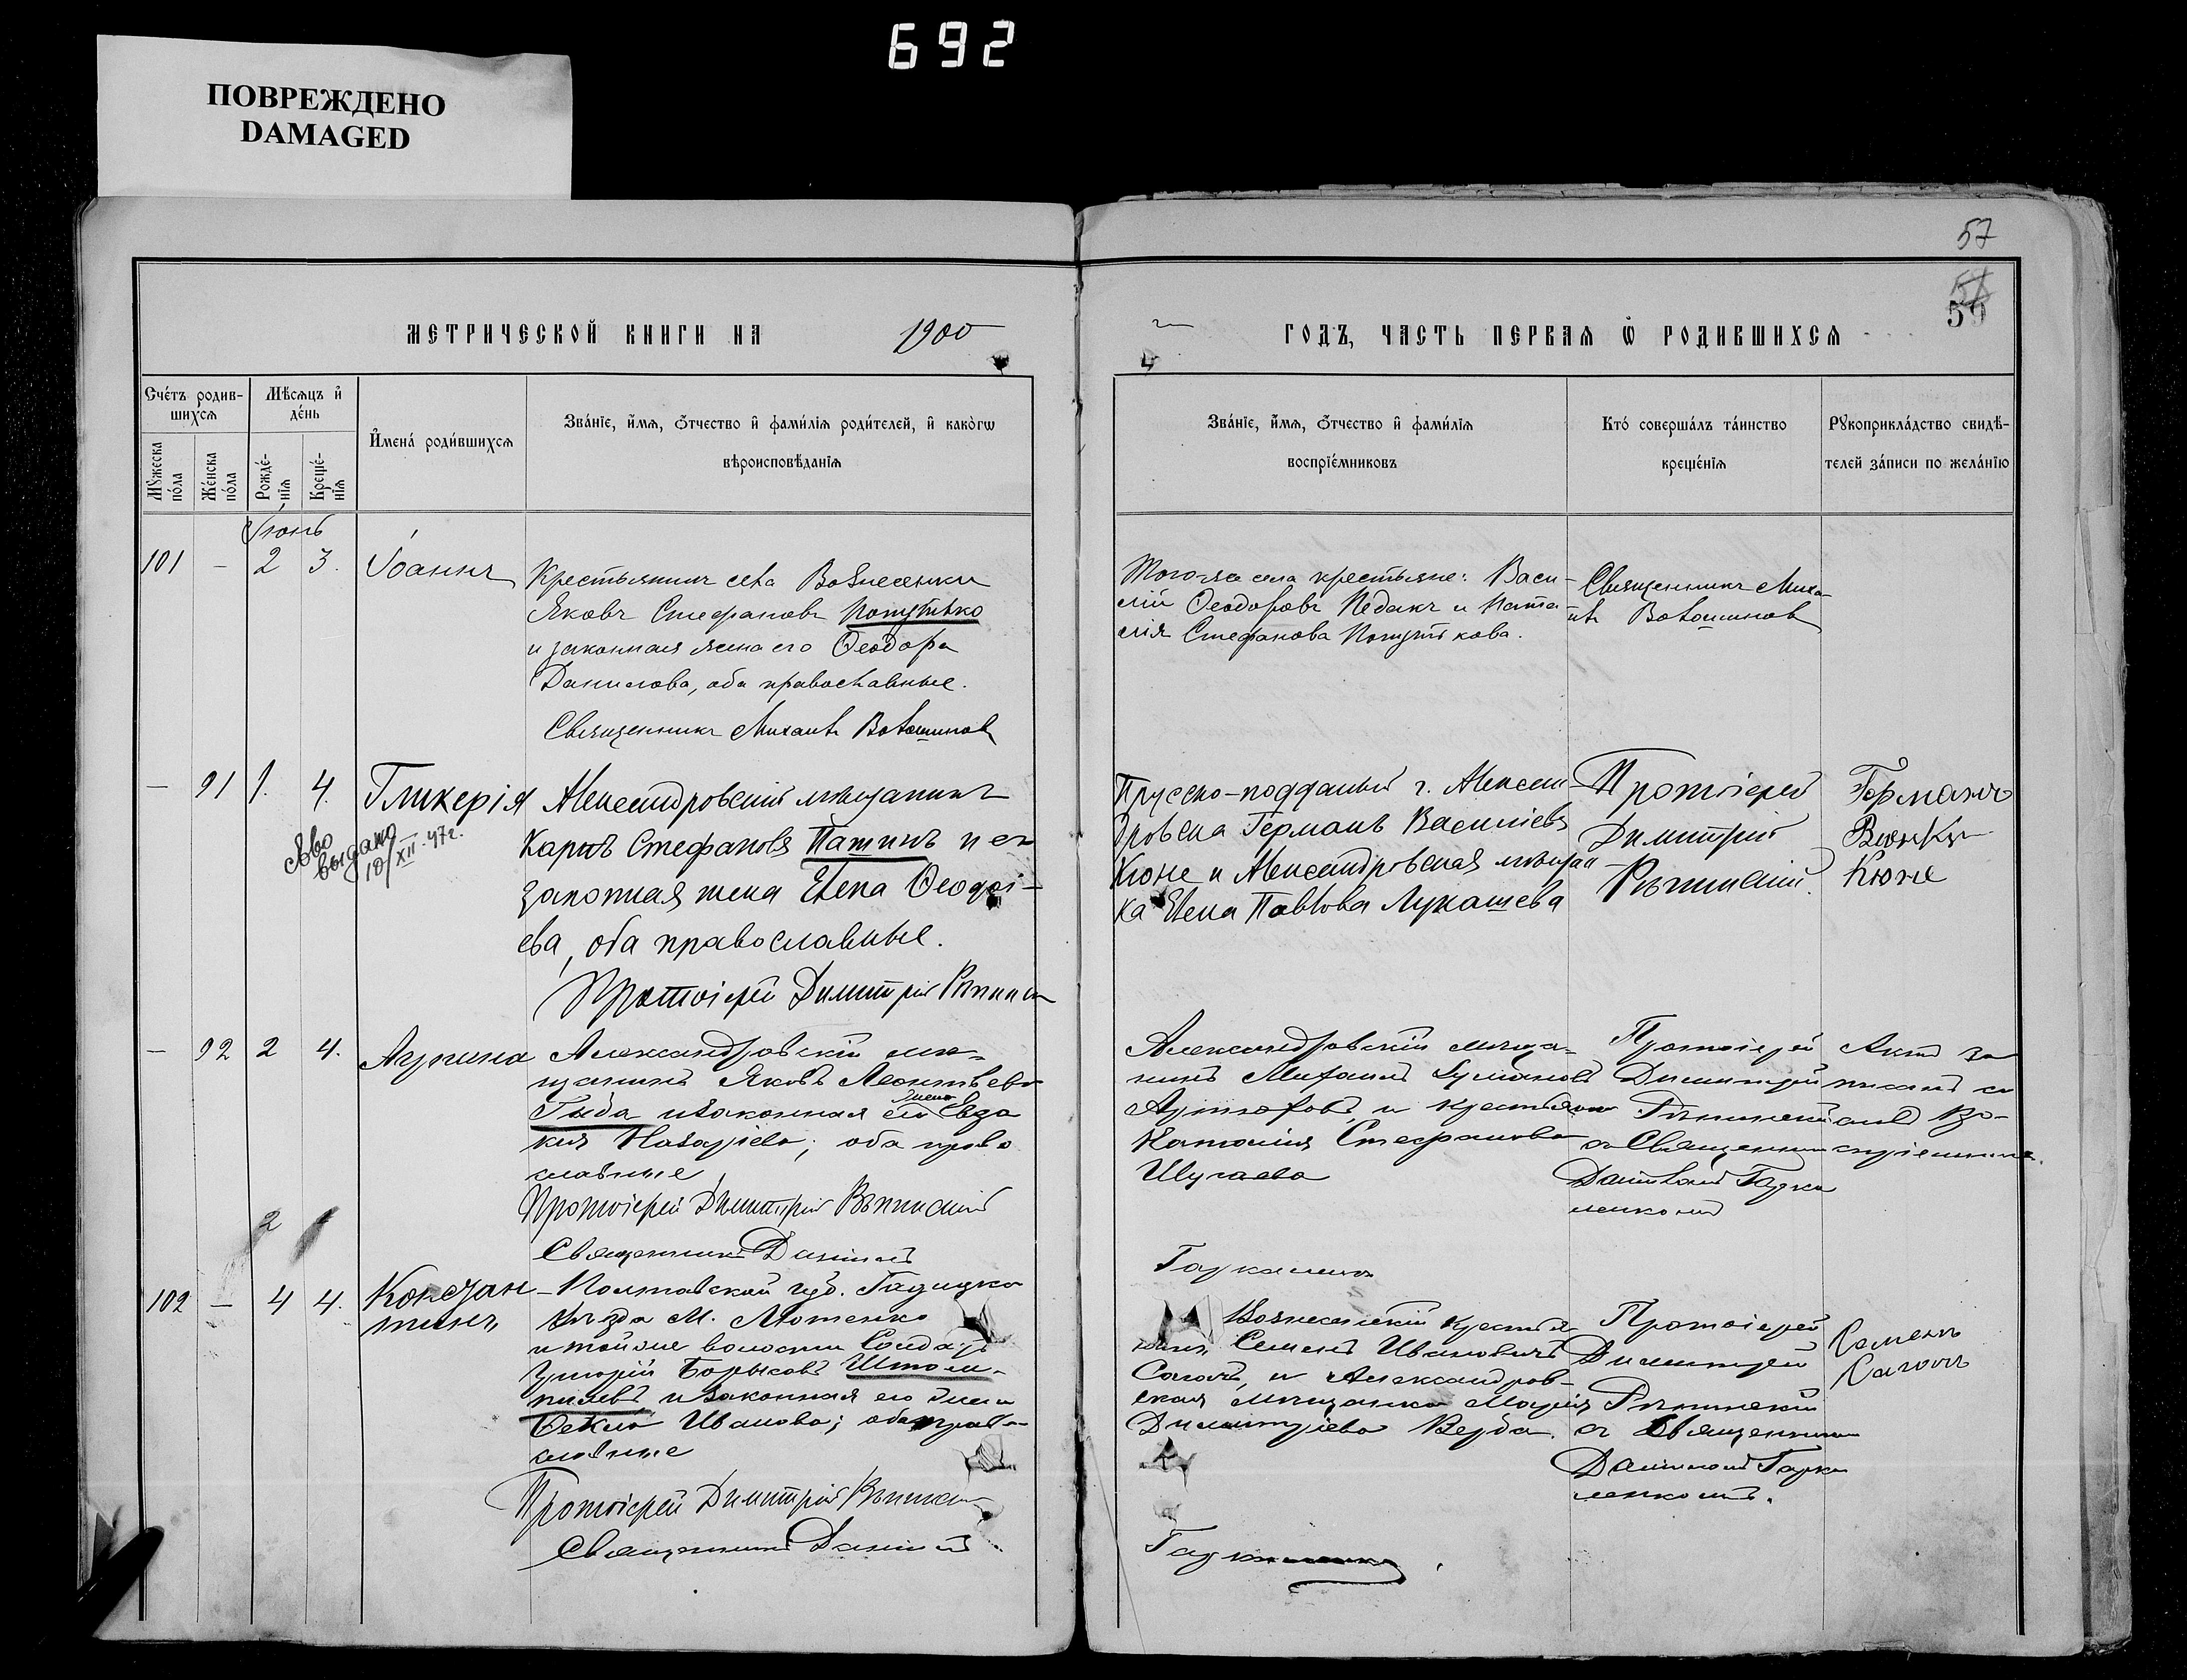 692
ПОВРЕЖДЕНО
DAMAGED
57
59
МЕТРИЧЕСКОЙ КНИГИ НА 1900
ГОДЪ, ЧАСТЬ ПЕРВАЯ Ѡ РОДИВШИХСЯ
Сче́тъ родив-
шихсѧ
Мѣ́сѧцъ и҆
де́нь
Мꙋжеска
по́ла
Же́нска
по́ла
Рожде́-
нїѧ
Креще́-
нїѧ
И҆мена̀ роди́вшихсѧ
Зва́нїе, и҆́мѧ, ѻ҆́тчество и҆ фами́лїѧ роди́телей, и҆ како́гѡ
вѣроисповѣ́данїѧ
Зва́нїе, и҆́мѧ, ѻ҆́тчество и҆ фами́лїѧ
воспрїе́мниковъ
Кто̀ соверша́лъ та́инство
креще́нїѧ
Рꙋкоприкла́дство свидѣ́-
телей за́писи по жела́нїю
Іюнь
101 - 2 3. Іоаннъ
Крестьянинъ села Вознесенки
Яковъ Стефановъ
и законная жена его Ѳеодора
Данилова, оба православные.
Священникъ Михаилъ Волошинов
Тогоже села крестьяне: Васи-
лій Ѳеодоровъ Педакъ и Ната-
лія Стефанова
Священникъ Миха-
илъ Волошинов
— 91 1. 4. Гликерія
выдано
18/XII-47г.
Александровскій мѣщанинъ
Карпъ Стефановъ Пашинъ и его
законная жена Елена Ѳеодосі-
ева, оба православные.
Протоіерей Димитрій
Прусско-подданный г. Алексан
дровска Германъ Василіевъ
Кюне и Александровская мѣщан
ка Елена Павлова Лукашева
Протоіерей
Димитрій
Германъ
Кюне
— 92 2 4.
Александровскій мѣ-
щанинъ Яковъ Леонтьевъ
Гиба и законная его жена Евдо
кія Назаріева; оба право
славные
Протоіерей Димитрій
Священникъ Даніилъ
Александровскій мѣща-
нинъ Михаилъ
и крестьянка
Наталія Стефанова
Протоіерей
Димитрій
съ Священником
Даніилом Гарку
шенкомъ
Актъ за
писанъ со
словъ во-
спріемника.
2
102 — 4 4. Констан
тинъ
Полтавской губ. Гадяцкаго
уѣзда М. Лютенко
и той же волости Солдатъ
и законная его жена
Ѳекла Иванова; оба право
славные
Протоіерей Димитрій
Священникъ Даніилъ
Вознесенскій крестья-
нинъ Семенъ Ивановичъ
и Александров-
ская мѣщанка Марія
Димитріева Верба.
Протоіерей
Димитрій
съ Священником
Даніиломъ Гарку
шенкомъ.
Семенъ